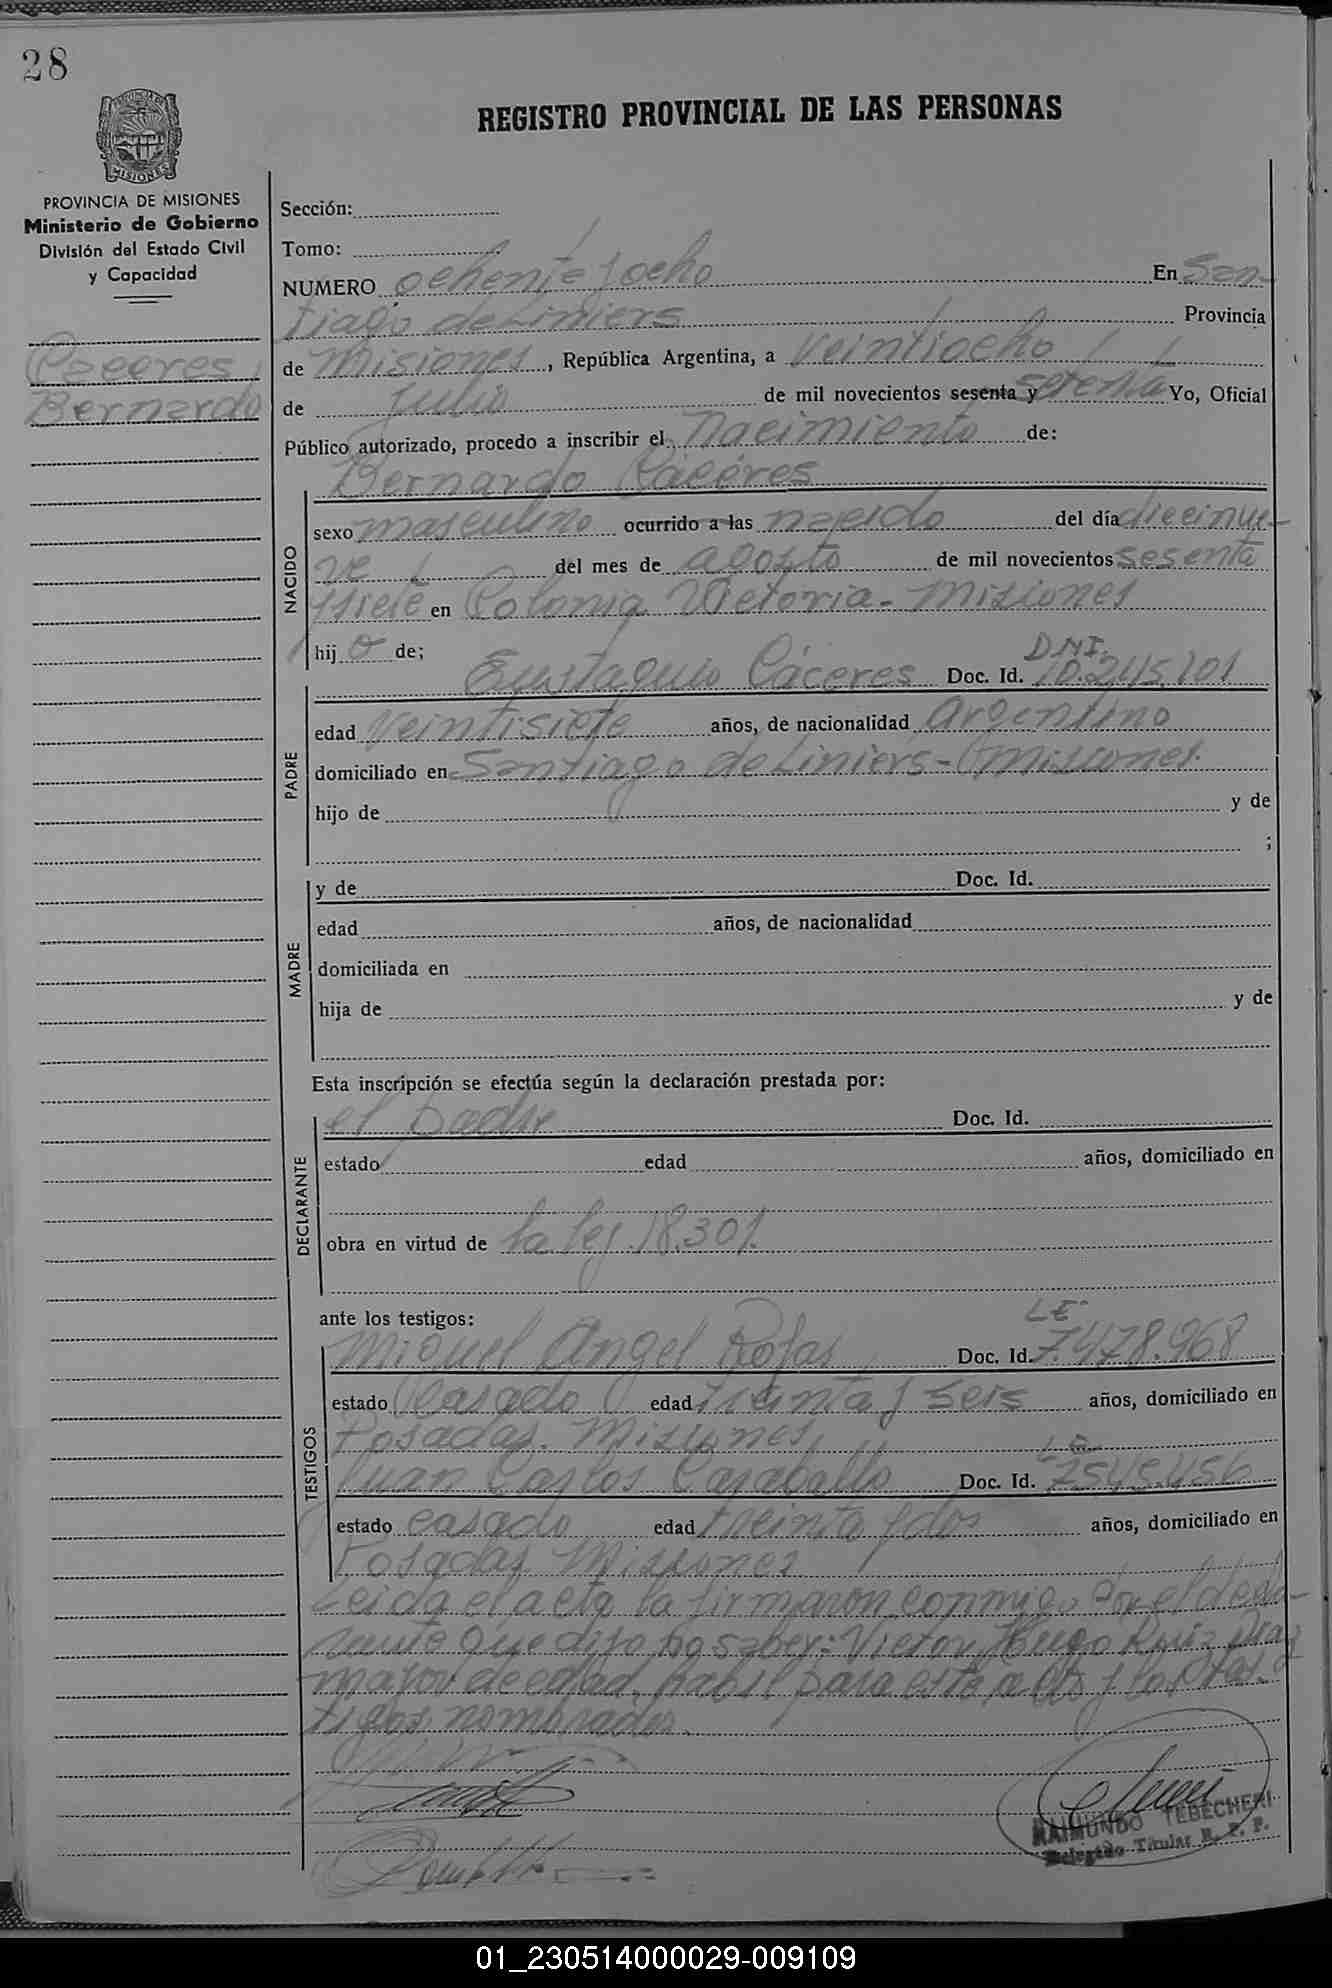 28
PROVINCIA DE MISIONES
MISIONES
PROVINCIA DE MISIONES
Ministerio de Gobierno
División del Estado Civil
y Capacidad
Caceres,
Bernardo
REGISTRO PROVINCIAL DE LAS PERSONAS
Sección:
Tomo:
NUMERO ochenta y ocho En San-
tiago de Liniers Provincia
de Misiones, República Argentina, a veintiocho
de Julio de mil novecientos sesenta y setenta Yo, Oficial
Público autorizado, procedo a inscribir el Nacimiento de:
Bernardo Cáceres
NACIDO
sexo masculino ocurrido a las nacido del día diecinue-
ve del mes de agosto de mil novecientos sesenta
y siete en Colonia Victoria - Misiones
hij o de;
D.N.I.
Eustaquio Cáceres Doc. Id. 10.245.101
PADRE
edad veintisiete años, de nacionalidad argentino
domiciliado en Santiago de Liniers - Misiones.
hijo de y de
;
MADRE
y de Doc. Id.
edad años, de nacionalidad
domiciliada en
hija de y de
Esta inscripción se efectúa según la declaración prestada por:
DECLARANTE
el padre Doc. Id.
estado edad años, domiciliado en
obra en virtud de la ley 18.301.
ante los testigos:
L.E.
TESTIGOS
Miguel Angel Rojas Doc. Id. 7.478.968
estado casado edad treinta y seis años, domiciliado en
Posadas. Misiones
L.E.
Juan Carlos Caraballo Doc. Id. 7545.456
estado casado edad treinta y dos años, domiciliado en
Posadas Misiones
Leida el acta la firmaron conmigo por el decla-
rante que dijo no saber: Victor Hugo Ruiz Diaz
mayor de edad, habil para este acto y los
tigos nombrados.
RAIMUNDO TEBECHERI
Delegado Titular R. P. P.
01_230514000029-009109